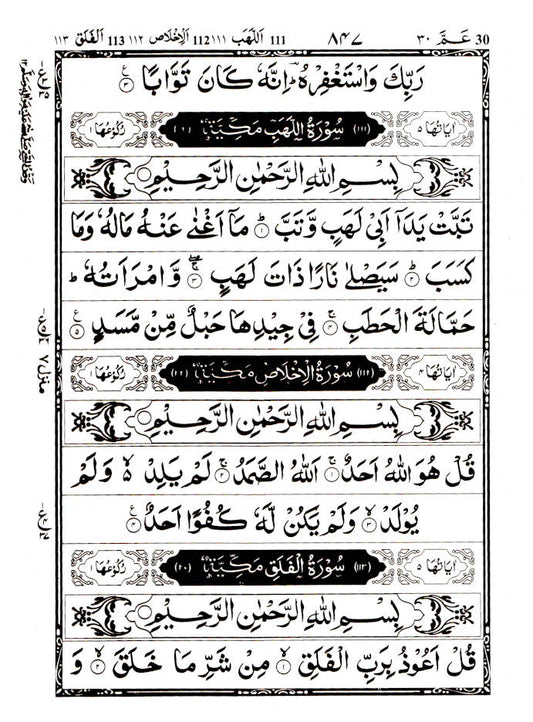 30 عَمَّ ٣٠ ٨٤٧ 111 اَللَّهَب ١١١ 112 اَلْاِخْلَاص ١١٢ 113 اَلْفَلَق ١١٣
رَبِّكَ وَاسْتَغْفِرْهُ ؕ اِنَّهٗ كَانَ تَوَّابًا ۝٣
اٰيَاتُهَا ٥ (١١١) سُوْرَةُ اللَّهَبِ مَكِّيَّةٌ (٦) رُكُوْعُهَا ١
بِسْمِ اللّٰهِ الرَّحْمٰنِ الرَّحِيْمِ
تَبَّتْ يَدَاۤ اَبِيْ لَهَبٍ وَّتَبَّ ؕ ۝١ مَاۤ اَغْنٰى عَنْهُ مَالُهٗ وَمَا
كَسَبَ ؕ ۝٢ سَيَصْلٰى نَارًا ذَاتَ لَهَبٍ ۚۖ ۝٣ وَّامْرَاَتُهٗ ؕ
حَمَّالَةَ الْحَطَبِ ۚ ۝٤ فِيْ جِيْدِهَا حَبْلٌ مِّنْ مَّسَدٍ ۝٥
اٰيَاتُهَا ٤ (١١٢) سُوْرَةُ الْاِخْلَاصِ مَكِّيَّةٌ (٢٢) رُكُوْعُهَا ١
بِسْمِ اللّٰهِ الرَّحْمٰنِ الرَّحِيْمِ
قُلْ هُوَ اللّٰهُ اَحَدٌ ۚ ۝١ اَللّٰهُ الصَّمَدُ ۚ ۝٢ لَمْ يَلِدْ ۙ۬ وَلَمْ
يُوْلَدْ ۙ ۝٣ وَلَمْ يَكُنْ لَّهٗ كُفُوًا اَحَدٌ ۝٤
اٰيَاتُهَا ٥ (١١٣) سُوْرَةُ الْفَلَقِ مَكِّيَّةٌ (٢٠) رُكُوْعُهَا ١
بِسْمِ اللّٰهِ الرَّحْمٰنِ الرَّحِيْمِ
قُلْ اَعُوْذُ بِرَبِّ الْفَلَقِ ۙ ۝١ مِنْ شَرِّ مَا خَلَقَ ۙ ۝٢ وَ
منزل ٧